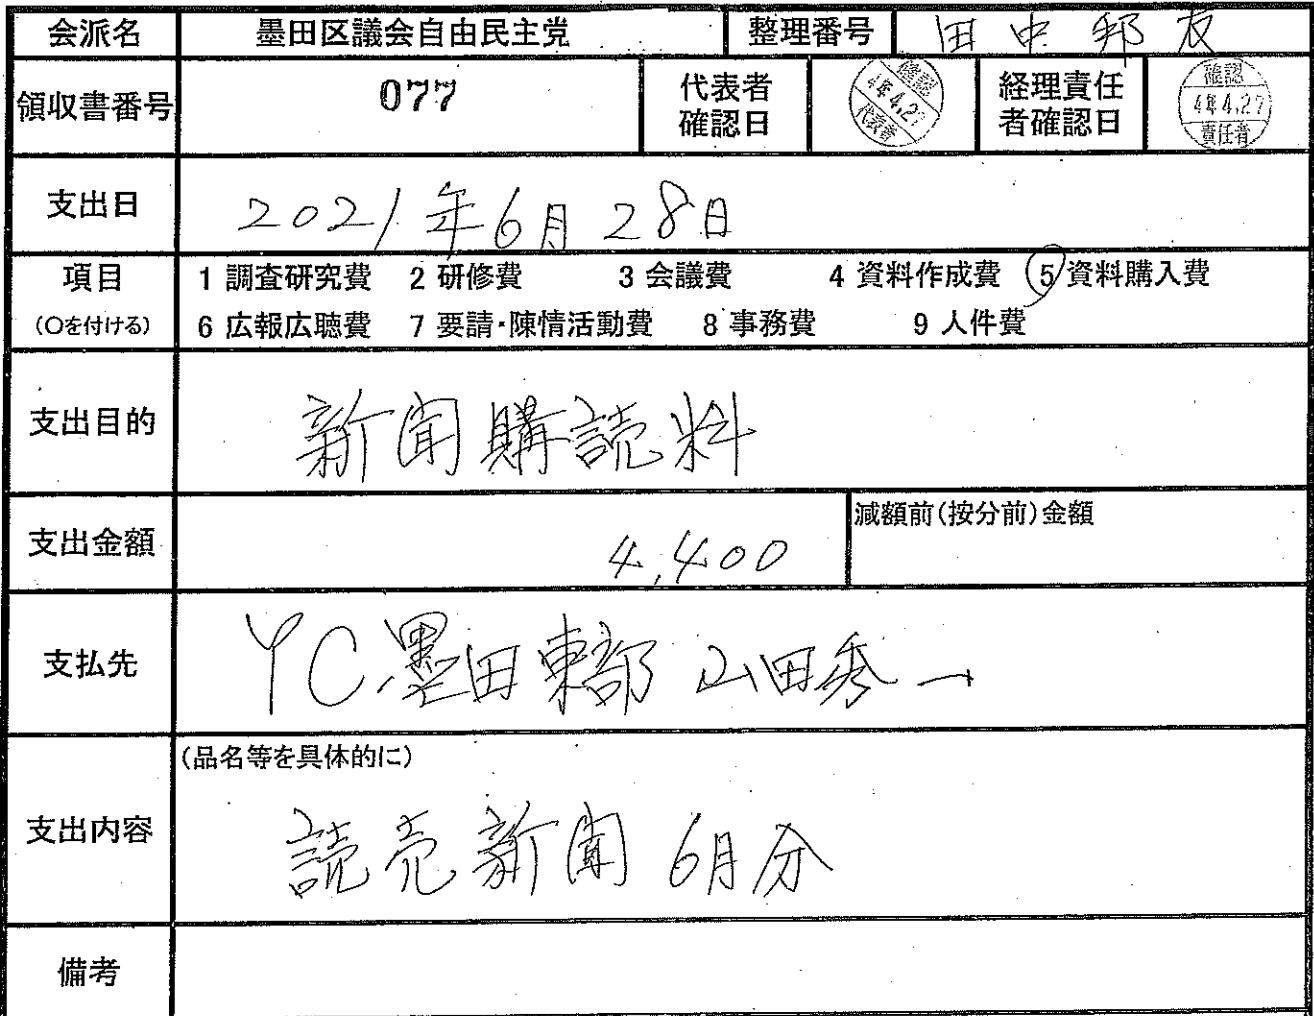 会派名 墨田区議会自由民主党 整理番号 田中邦友
領収書番号 077 代表者確認日 確認 4年4.27 代表者 経理責任者確認日 確認 4年4.27 責任者
支出日 2021年6月28日
項目 1 調査研究費 2 研修費 3 会議費 4 資料作成費 5 資料購入費
(○を付ける) 6 広報広聴費 7 要請・陳情活動費 8 事務費 9 人件費
支出目的 新聞購読料
支出金額 4,400 減額前(按分前)金額
支払先 YC墨田東部 山田秀一
(品名等を具体的に)
支出内容 読売新聞 6月分
備考